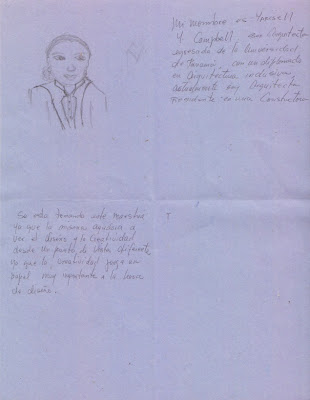 Mi nombre es Yarisell
Y Campbell, soy Arquitecta
egresada de la Universidad
de Panamá, con un diplomado
en Arquitectura inclusiva
actualmente soy Arquitecta
Residente en una Constructora
Se esta tomando esta maestria
ya que la manera
ver el diseño y la Creatividad
desde un punto de Vista diferente
ya que la creatividad juega un
papel muy importante a la hora
de diseño.